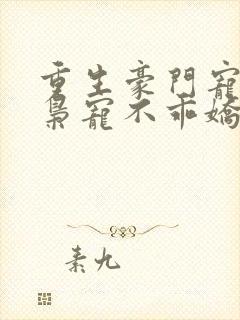 重生豪門寵
梟寵不乖嬌
素九